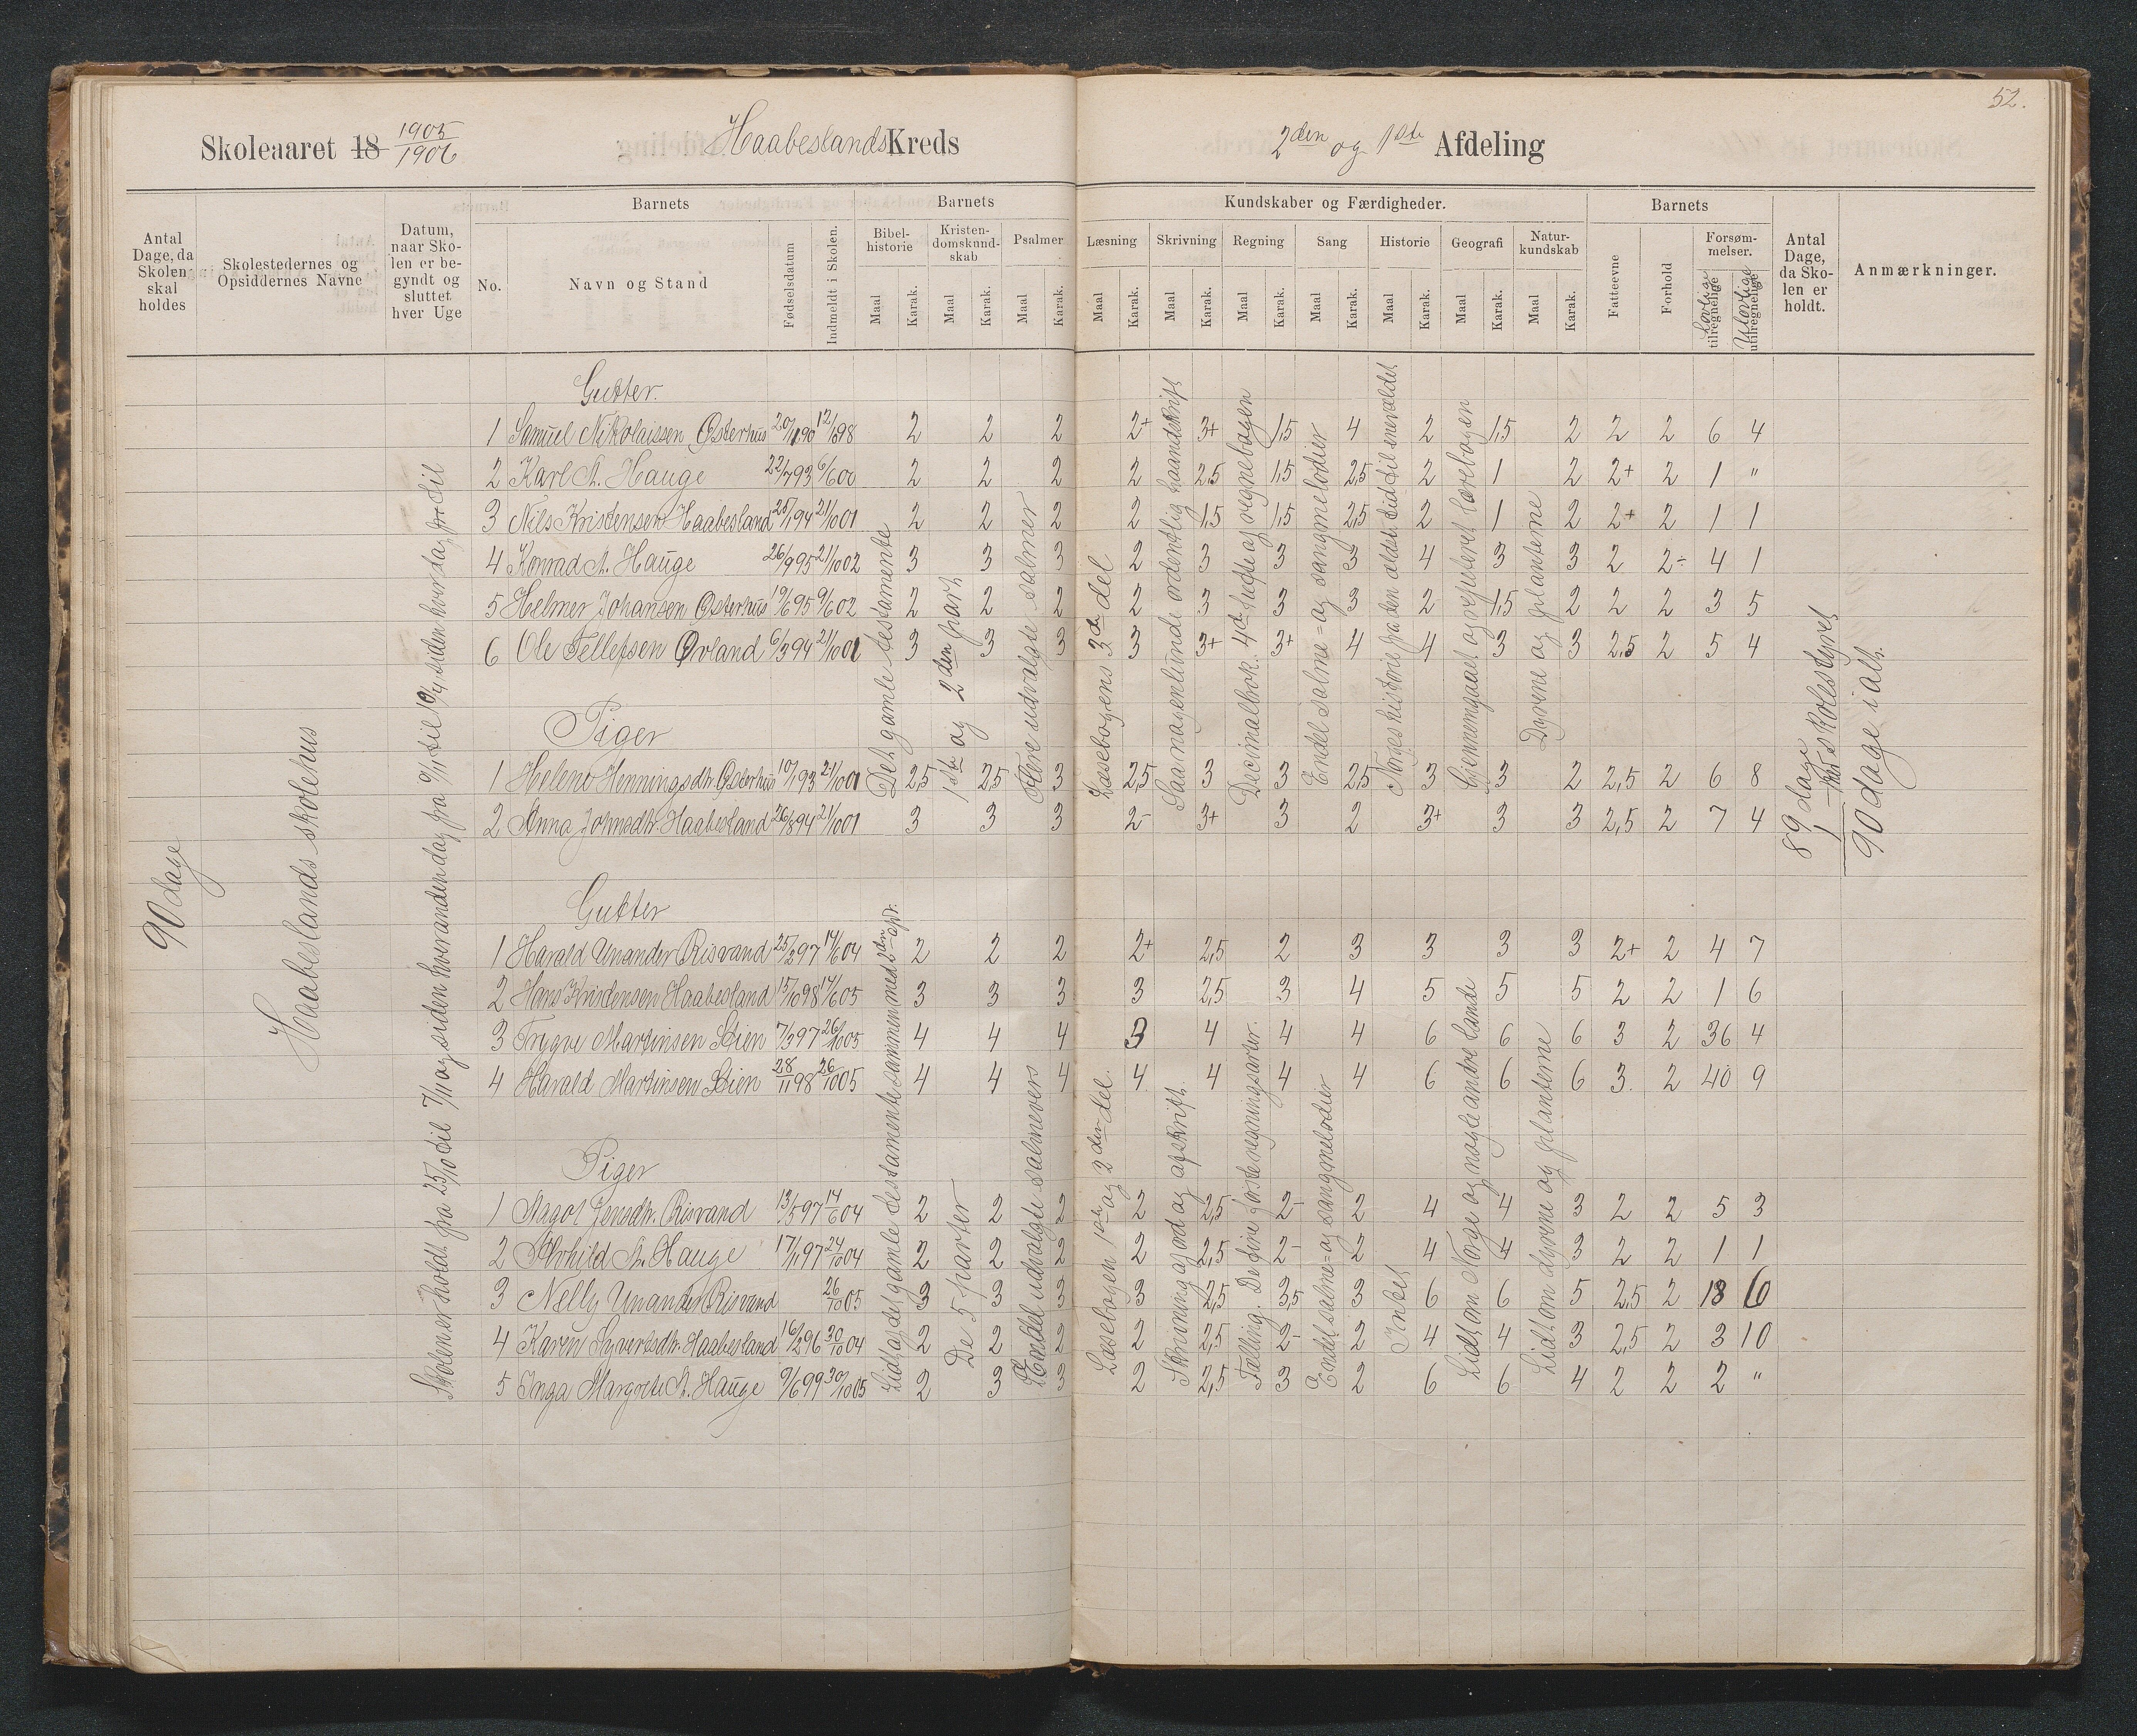 52.
Skoleaaret 18 1905/1906 Haabeslands Kreds 2den og 1ste Afdeling
Antal Dage, da Skolen skal holdes
Skolestedernes og Opsiddernes Navne
Datum, naar Skolen er begyndt og sluttet hver Uge
Barnets
No. Navn og Stand Fødselsdatum Indmeldt i Skolen.
Barnets
Bibelhistorie Kristendomskundskab Psalmer
Maal Karak. Maal Karak. Maal Karak.
Kundskaber og Færdigheder.
Læsning Skrivning Regning Sang Historie Geografi Naturkundskab
Maal Karak. Maal Karak. Maal Karak. Maal Karak. Maal Karak. Maal Karak. Maal Karak.
Barnets
Fatteevne Forhold Forsømmelser. Lovlige tilregnelige Ulovlige utilregnelige
Antal Dage, da Skolen er holdt.
Anmærkninger.
90 dage
Haabeslands skolehus
Skolen er holdt fra 25/10 til 7/11 og siden hverandendag fra 9/1 til 10/4, siden hver dag
Gutter.
1 Samuel Nikolaissen Østerhus 20/1190 12/698 2 2 2 2+ 3+ 1,5 4 2 1,5 2 2 2 6 4
2 Karl A. Hauge 22/793 6/600 2 2 2 2 2,5 1,5 2,5 2 1 2 2+ 2 1 "
3 Nils Kristensen Haabesland 25/194 21/1001 2 2 2 2 1,5 1,5 2,5 2 1 2 2+ 2 1 1
4 Konrad A. Hauge 26/995 21/1002 3 3 3 2 3 3 3 4 3 3 2 2÷ 4 1
5 Helmer Johansen Østerhus 19/695 9/602 2 2 2 2 3 3 3 2 1,5 2 2 2 3 5
6 Ole Tellefsen Ørland 6/394 21/1001 3 3 3 3 3+ 3+ 4 4 3 3 2,5 2 5 4
Piger
1 Helene Henningsdtr. Østerhus 10/193 21/1001 2,5 2,5 3 2,5 3 3 2,5 3 3 2 2,5 2 6 8
2 Anna Johnsdtr. Haabesland 26/894 21/1001 3 3 3 2- 3+ 3 2 3+ 3 3 2,5 2 7 4
Det gamle testamente
1ste og 2den part
Flere udvalgte salmer
Læsebogens 3de del
Saa nogenlunde ordentlig haandskrift
Decimalbrøk. 4de hefte af regnebogen
Endel salme- og sangmelodier
Norges historie fra den ældste tid til enevældet
Gjennemgaaet og repeteret lærebogen
Dyrene og planterne
89 dage
1 — hos skolestyret
90 dage i alt.
Gutter
1 Harald Unander Risvand 25/297 14/604 2 2 2 2+ 2,5 2 3 3 3 3 2+ 2 4 7
2 Hans Kristensen Haabesland 15/1098 14/605 3 3 3 3 2,5 3 4 5 5 5 2 2 1 6
3 Trygve Martinsen Stien 7/397 26/1005 4 4 4 3 4 4 4 6 6 6 3 2 36 4
4 Harald Martinsen Stien 28/1198 26/1005 4 4 4 4 4 4 4 6 6 6 3 2 40 9
Piger
1 Aagot Jensdtr. Risvand 13/597 14/604 2 2 2 2 2,5 2- 2 4 4 3 2 2 5 3
2 Arhild A. Hauge 17/1197 24/1004 2 2 2 2 2,5 2- 2 4 4 3 2 2 1 1
3 Nelly Unander Risvand 26/1005 3 3 3 3 2,5 3,5 3 6 6 5 2,5 2 18 10
4 Karen Syvertsdtr. Haabesland 16/296 30/1004 2 2 2 2 2,5 2- 2 4 4 3 2,5 2 3 10
5 Inga Margrete A. Hauge 9/699 30/1005 2 3 3 2 2,5 3 2 6 6 4 2 2 2 "
Lidt af det gamle testamente sammen med 2den afd.
De 5 parter
Endel udvalgte salmevers
Læsebogen 1ste og 2den del.
Skrivning af ord og afskrift.
Tælling. De fire første regningsarter.
Endel salme- og sangmelodier
Intet
Lidt om Norge og nogle andre lande
Lidt om dyrene og planterne